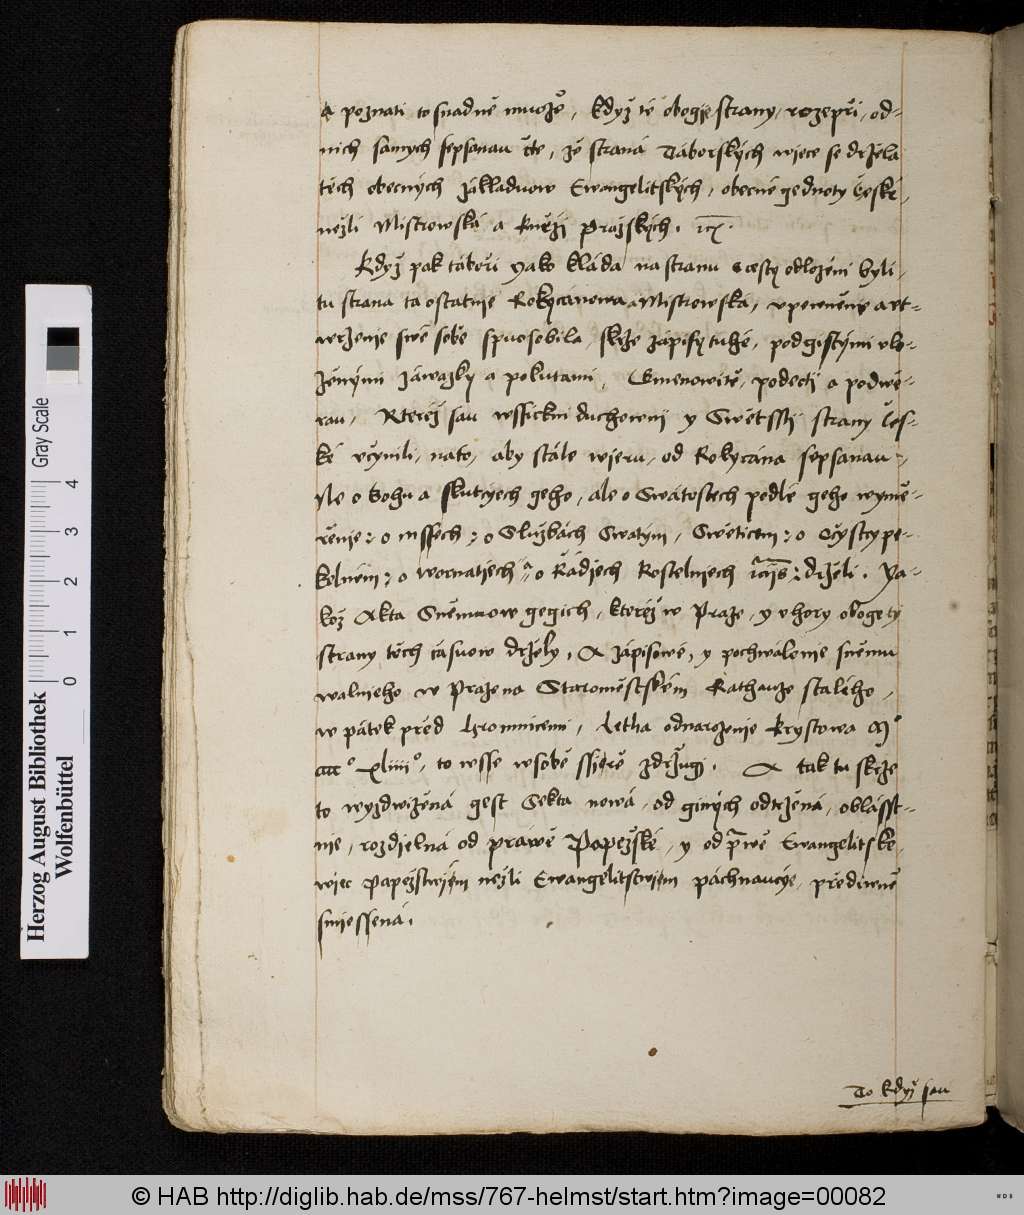 a poznati to snadně muože, když té obogje strany, rozepři, od-
nich samych sepsanau čte, že strana Táborských wjece se držela
těch obecných základuow Ewangelitských, obecné gednoty české,
nežli Mistrowská a Kněži Pražských. etc.
Když pak táboři yako kláda na stranu s cesty odloženi byli,
tu strana ta ostatnie Rokycanowa a Mistrowská, vpewněnie a vt-
wrzenie swé sobě spuosobila, skrze zápisy tuhé, pod gistými vlo-
ženými záwazky a pokutami, Gmenowitě, podecti a podwě-
rau, Kteréž sau wssickni duchowni y Swětssti strany Čes-
ké včynili, na to, aby stále wjeru, od Rokycána sepsanau,
Ne o bohu a skutcyech geho, ale o Swátostech podlé geho wymě-
řenie: o mssech: o Službách Swatým, Swěticem: o Očystcy pe-
kelném: o wornatiech a o Řádiech Kostelniech drželi. Ya-
kož Akta Sněmuow gegich, kteréž w Praze, y v hory obogety
strany těch časuow držely, A zápisowé, y pochwálenie sněmu
walnieho w Praze na Staroměstském Rathauze stalého,
w pátek před Hromnicemi, Letha od narozenie Krystowa Mo
cccco xliiiio, to wsse w sobě ssirě zdržugj. A tak tu skrze
to wyzdwižená gest Sekta nowá, od giných odtržená, oblásst-
nie, rozdielná od práwě Papežské, y od prwé Ewangelitské,
wiec Papežstwjem nežli Ewangelitstwjem páchnaucye, předjwně
smiessená.
To když sau
Herzog August Bibliothek
Wolfenbüttel
0 1 2 3 4
Gray Scale
© HAB http://diglib.hab.de/mss/767-helmst/start.htm?image=00082
WDB